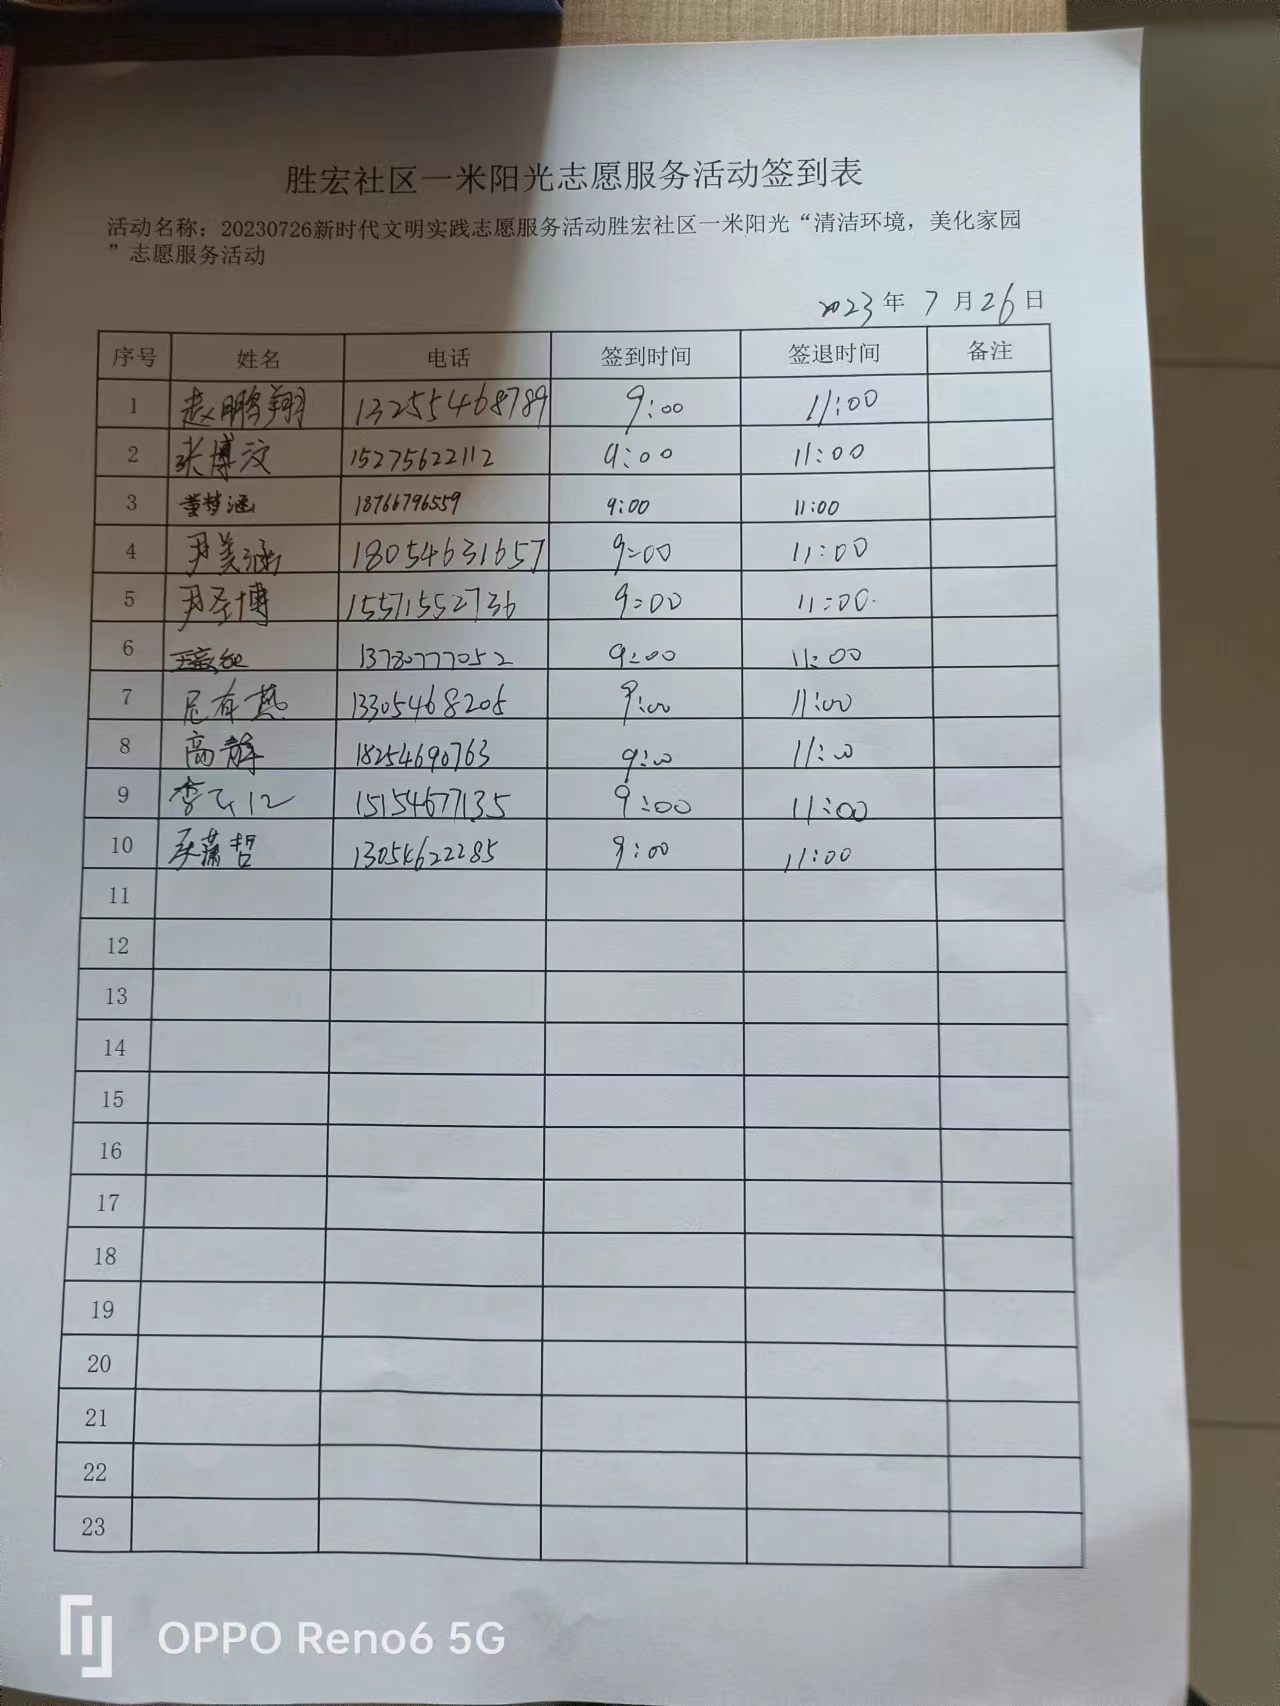 胜宏社区一米阳光志愿服务活动签到表
活动名称：20230726新时代文明实践志愿服务活动胜宏社区一米阳光“清洁环境，美化家园
”志愿服务活动
2023年 7 月 26 日
序号 姓名 电话 签到时间 签退时间 备注
1 赵鹏翔 13255468789 9:00 11:00
2 张博汶 15275622112 9:00 11:00
3 董梦涵 18766796559 9:00 11:00
4 尹美涵 18054631657 9:00 11:00
5 尹圣博 15571552736 9:00 11:00
6 13780777052 9:00 11:00
7 尼有燕 13305468205 9:00 11:00
8 高静 18254690763 9:00 11:00
9 15154677135 9:00 11:00
10 13054622285 9:00 11:00
11
12
13
14
15
16
17
18
19
20
21
22
23
OPPO Reno6 5G